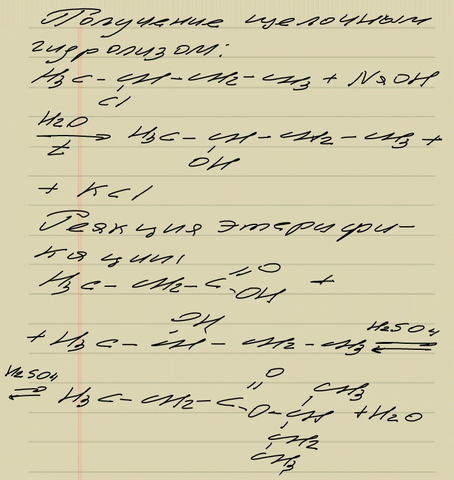 Получение щелочным
гидролизом:
H3C – CH – CH2 – CH3 + NaOH
Cl
H2O
t
→ H3C – CH – CH2 – CH3 +
OH
+ KCl
Реакция этерифи-
кации:
H3C – CH2 – C = O
OH +
OH
+ H3C – CH – CH2 – CH3 H2SO4 ⇌
H2SO4 ⇌
O
H3C – CH2 – C = O – CH – CH3 + H2O
CH2
CH3